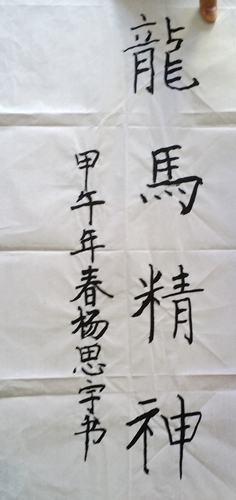 龍馬精神
甲午年春杨思宇书